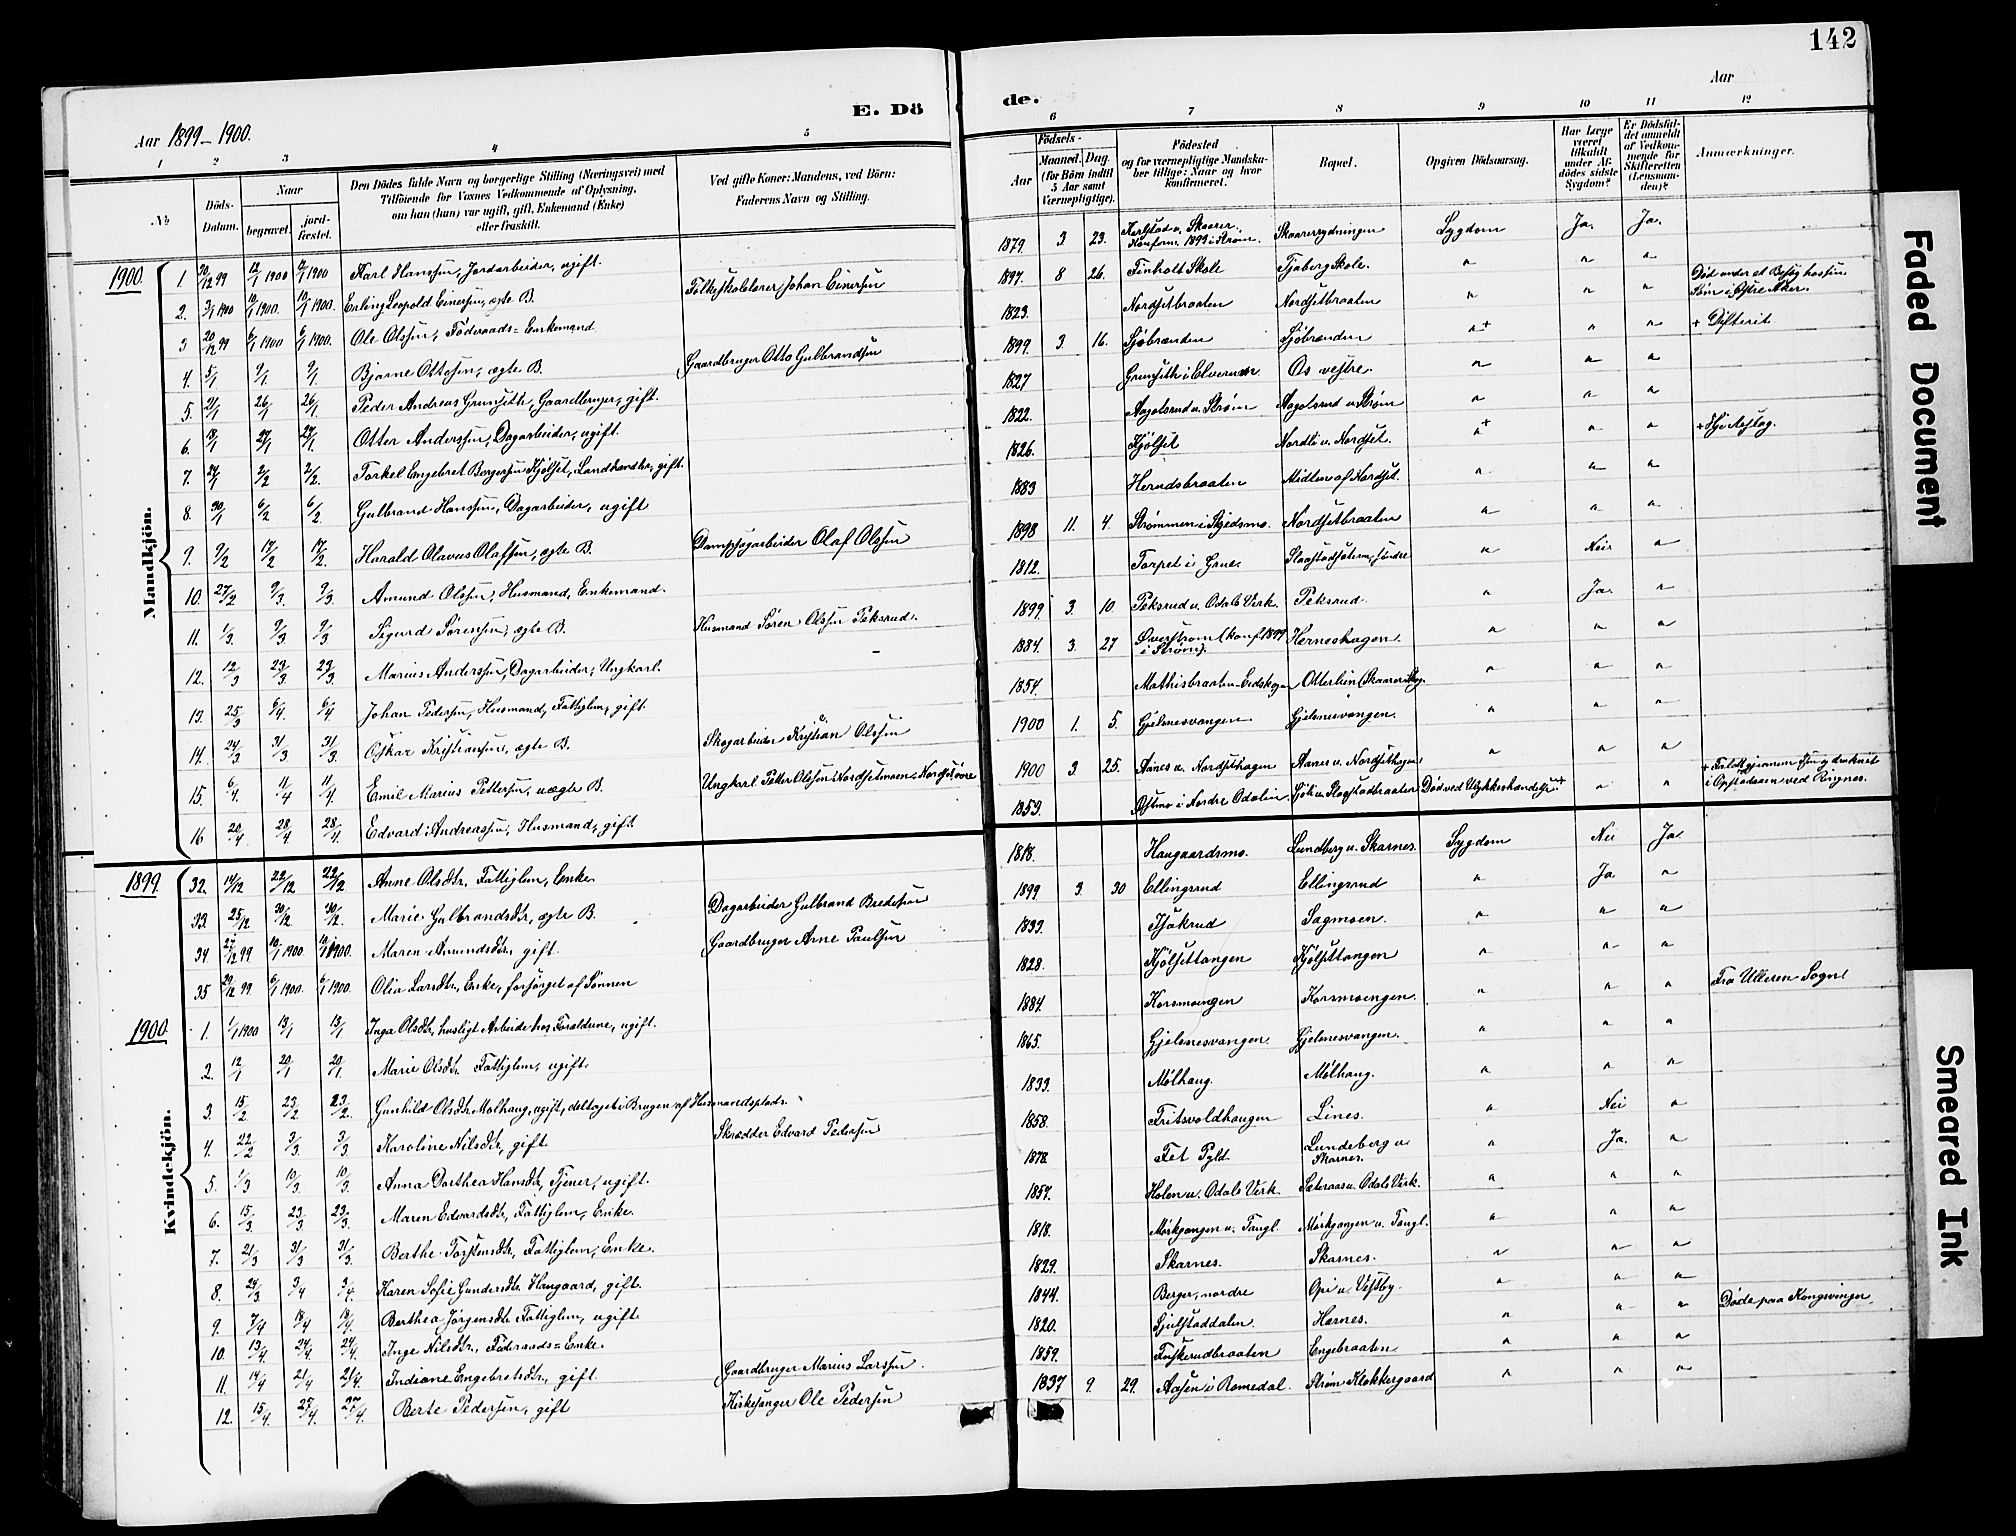 142
E. Dö
de.
Aar 1899–1900.
Aar
1 2 3 4 5
6 7 8 9 10 11 12
No
Döds-Datum.
Naar
begravet.
jord-fæstet.
Den Dödes fulde Navn og borgerlige Stilling (Næringsvei) med
Tilföiende for Voxnes Vedkommende af Oplysning,
om han (hun) var ugift, gift, Enkemand (Enke)
eller fraskilt.
Ved gifte Koner: Mandens, ved Börn:
Faderens Navn og Stilling.
Födsels-
Aar
Maaned. Dag.
(for Börn indtil
5 Aar samt
Værnepligtige).
Födested
og for værnepligtige Mandska-
ber tillige: Naar og hvor
konfirmeret.
Bopæl.
Opgiven Dödsaarsag.
Har Læge
været
tilkaldt
under Af-
dödes sidste
Sygdom?
Er Dödsfal-
det anmeldt
af Vedkom-
mende for
Skifteretten
(Lensman-
den)?
Anmærkninger.
Mandkjön.
1900.
1. 30/12 99 1900 1900 Karl Hanssen, Jordarbeider, ugift. 1879 3 23. Karlstad u. Skaarer. Konfirm. 1893 i Strøm. Skaarerrydningen Sygdom Ja. Ja.
2. 3/1 1900 10/1 1900. 10/1 1900. Erling Leopold Einersen, ægte B. Folkeskolelærer Johan Einersen 1897. 8 26. Finholt Skole Tjaberg Skole. " " "
3 20/12 99 6/1 1900 6/1 1900. Ole Olssen, Føderaads-Enkemand. 1823. Nordsetbraaten Nordsetbraaten " " " Død under et Besøg hos sin Søn i Østre Aker.
4. 5/1 9/1. 9/1. Bjarne Ottesen, ægte B. Gaardbruger Otto Gulbrandsen 1899. 3. 16. Sjøbrænden Sjøbrænden "+ " " + Difterit
5. 21/1 26/1 26/1. Peder Andreas Grunseth, Gaardbruger, gift. 1827 Grunseth i Elverum Os vestre. " " "
6. 18/1 27/1 27/1. Otter Anderssen, Dagarbeider, ugift. 1822. Aagolsrud u. Strøm Aagolsrud u. Strøm " " "
7. 24/1 2/2 2/2. Torkel Engebret Borgersen Kjølset, Landhandler, gift. 1826. Kjølset Nordli u. Nordset. "+ " "
8. 30/1 6/2 6/2. Gulbrand Hanssen, Dagarbeider, ugift 1883 Herudsbraaten Midtom af Nordset. " " "
9. 9/2 17/2 17/2. Harald Olavus Olafsen, ægte B. Dampsagarbeider Olaf Olssen 1898 11. 4. Strømmen i Skjedsmo. Nordsetbraaten " " "
10. 27/2 9/3. 9/3. Amund Olssen, Husmand, Enkemand. 1812. Torpet i Grue. Slaastadsæteren, søndre " Nei "
11. 1/3. 9/3 9/3 Sigurd Sørensen, ægte B. Husmand Søren Olssen Peksrud. 1899 3. 10. Peksrud u. Odals Verk. Peksrud. " Ja. "
12. 12/3 23/3 23/3. Marius Anderssen, Dagarbeider, Ungkarl. 1884. 3. 27 Øverstrøm (konf. 1899 i Strøm). Herneshagen. " " "
13. 25/3 6/4. 6/4 Johan Pedersen, Husmand, Fattiglem, gift. 1854. Mathisbraaten Eidskogen " " "
14. 24/3 31/3 31/3. Oskar Kristiansen, ægte B. Skogarbeider Kristian Olssen 1900 1. 5. Gjelnesvangen Gjelnesvangen. " " "
15. 6/4. 11/4 11/4. Emil Marius Pettersen, uægte B. Ungkarl Petter Olssen Nordsetmoen, Nordset øvre 1900 3. 25. Aanes u. Nordsethagen Aanes u. Nordsethagen " " "
16 20/4 28/4 28/4. Edvard Andreassen, Husmand, gift. 1853. Ostmo i Nordre Odalen. Sjøli u. Slaastadbraaten Død ved Ulykkeshændelse + " " + Faldt gjennem Isen og druknet i Opstadaaen ved Ringnes.
Kvindekjön.
1899
32. 14/12 22/12 22/12 Anne Olsdtr, Fattiglem, Enke. 1818. Haugaardsmo. Lundberg u. Skarnes. Sygdom Nei Ja.
33. 25/12 30/12. 30/12. Marie Gulbrandsdtr, ægte B. Dagarbeider Gulbrand Bredesen 1899 3. 30 Ellingsrud Ellingsrud " Ja. "
34. 27/12 99 10/1 1900 10/1 1900. Maren Amundsdtr, gift. Gaardbruger Arne Paulsen 1833. Isakrud Sagmoen. " " "
35 29/12 99. 6/1 1900. 6/1 1900. Olia Larsdtr, Enke, forsørget af Sønnen 1828. Kjølsettangen Kjølsettangen " " "
1900.
1. 1/1 1900 13/1 13/1 Inga Olsdtr, husligt Arbeide hos Forældrene, ugift. 1884. Korsmoengen Korsmoengen. " " " Fra Ulleren Sogn
2. 12/1 20/1 20/1. Marie Olsdtr. Fattiglem, ugift. 1865. Gjelnesvangen. Gjelnesvangen. " " "
3 15/2 23/2 23/2. Gunhild Olsdtr Mølhaug, ugift, deltaget i Brugen af Husmandsplads. 1833. Mølhaug. Mølhaug. " " "
4. 22/2 3/3 3/3 Karoline Nilsdtr, gift Skrædder Edvard Pedersen 1858. Fritsvoldhaugen Lines. " Nei "
5. 1/3 10/3. 10/3. Anna Dorthea Hansdtr, Tjener, ugift. 1878. Fet Pgld. Lundeberg u. Skarnes. " Ja. "
6. 15/3. 23/3 23/3. Maren Edvardsdtr, Fattiglem, Enke. 1857. Holen u. Odals Verk. Sæteraas u. Odals Verk. " " "
7. 21/3 31/3 31/3. Berthe Torstensdtr, Fattiglem, Enke. 1818. Mørkgangen u. Tangl. Mørkgangen u. Tangl. " " "
8. 24/3. 3/4 3/4. Karen Sofie Gundersdtr Haugaard, gift. 1829. Skarnes. Skarnes. " " "
9. 7/4 18/4 18/4. Berthea Jørgensdtr Fattiglem, ugift 1844. Berger, nordre Opi u. Vestby. " " "
10. 13/4. 24/4 24/4. Inge Nilsdtr, Føderaads-Enke. 1820. Sjulstaddalen Hernes. " " " Døde paa Kongsvinger.
11. 14/4 21/4 21/4. Indiane Engebretsdtr, gift. Gaardbruger Marius Larssen. 1859. Fuskerudbraaten Engebraaten " " "
12. 15/4. 27/4. 27/4. Berte Pedersen, gift Kirkesanger Ole Pedersen 1837 9. 29. Aasen i Romedal. Strøm Klokkergaard " " "
Faded Document
Smeared Ink